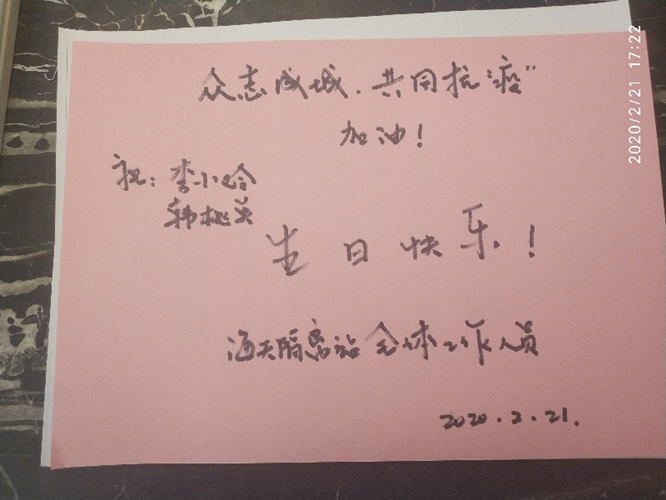 众志成城、共同抗"疫"
加油!
祝: 李小玲
韩桃英
生日快乐!
海天隔离站全体工作人员
2020.2.21.
2020/2/21 17:22